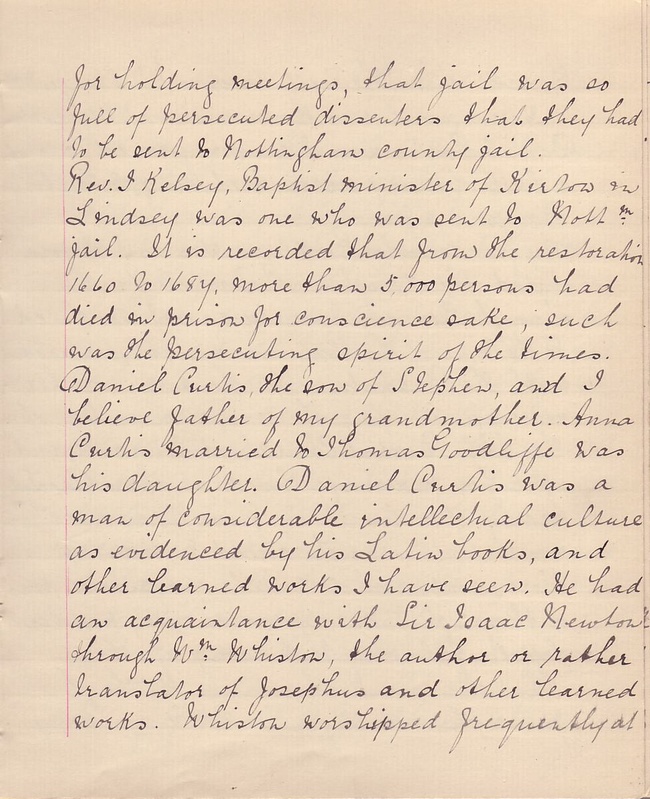 for holding meetings, that jail was so
full of persecuted dissenters that they had
to be sent to Nottingham county jail.
Rev. J Kelsey, Baptist minister of Kirton in
Lindsey was one who was sent to Nottm
jail. It is recorded that from the restoration
1660 to 1684, more than 5,000 persons had
died in prison for conscience sake, such
was the persecuting spirit of the times.
Daniel Curtis, the son of Stephen, and I
believe father of my grandmother. Anna
Curtis married to Thomas Goodliffe was
his daughter. Daniel Curtis was a
man of considerable intellectual culture
as evidenced by his Latin books, and
other learned works I have seen. He had
an acquaintance with Sir Isaac Newton
through Wm Whiston, the author or rather
translator of Josephus and other learned
works. Whiston worshipped frequently at